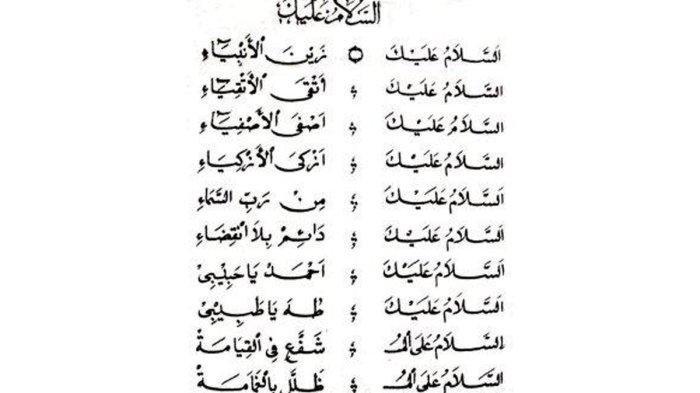 اَلسَّلَامُ عَلَيْكَ
اَلسَّلَامُ عَلَيْكَ زَيْنَ الْأَنْبِيَاءِ
اَلسَّلَامُ عَلَيْكَ اَتْقَى الْأَتْقِيَاءِ
اَلسَّلَامُ عَلَيْكَ اَصْفَى الْأَصْفِيَاءِ
اَلسَّلَامُ عَلَيْكَ اَزْكَى الْأَزْكِيَاءِ
اَلسَّلَامُ عَلَيْكَ مِنْ رَبِّ السَّمَاءِ
اَلسَّلَامُ عَلَيْكَ دَائِمْ بِلَا انْقِضَاءِ
اَلسَّلَامُ عَلَيْكَ اَحْمَدُ يَا حَبِيْبِىْ
اَلسَّلَامُ عَلَيْكَ طٰهٰ يَا طَبِيْبِىْ
اَلسَّلَامُ عَلَى الْمُ شَفَّعِ فِى الْقِيَامَةْ
اَلسَّلَامُ عَلَى الْمُ ظَلَّلِ بِالْغَمَامَةْ